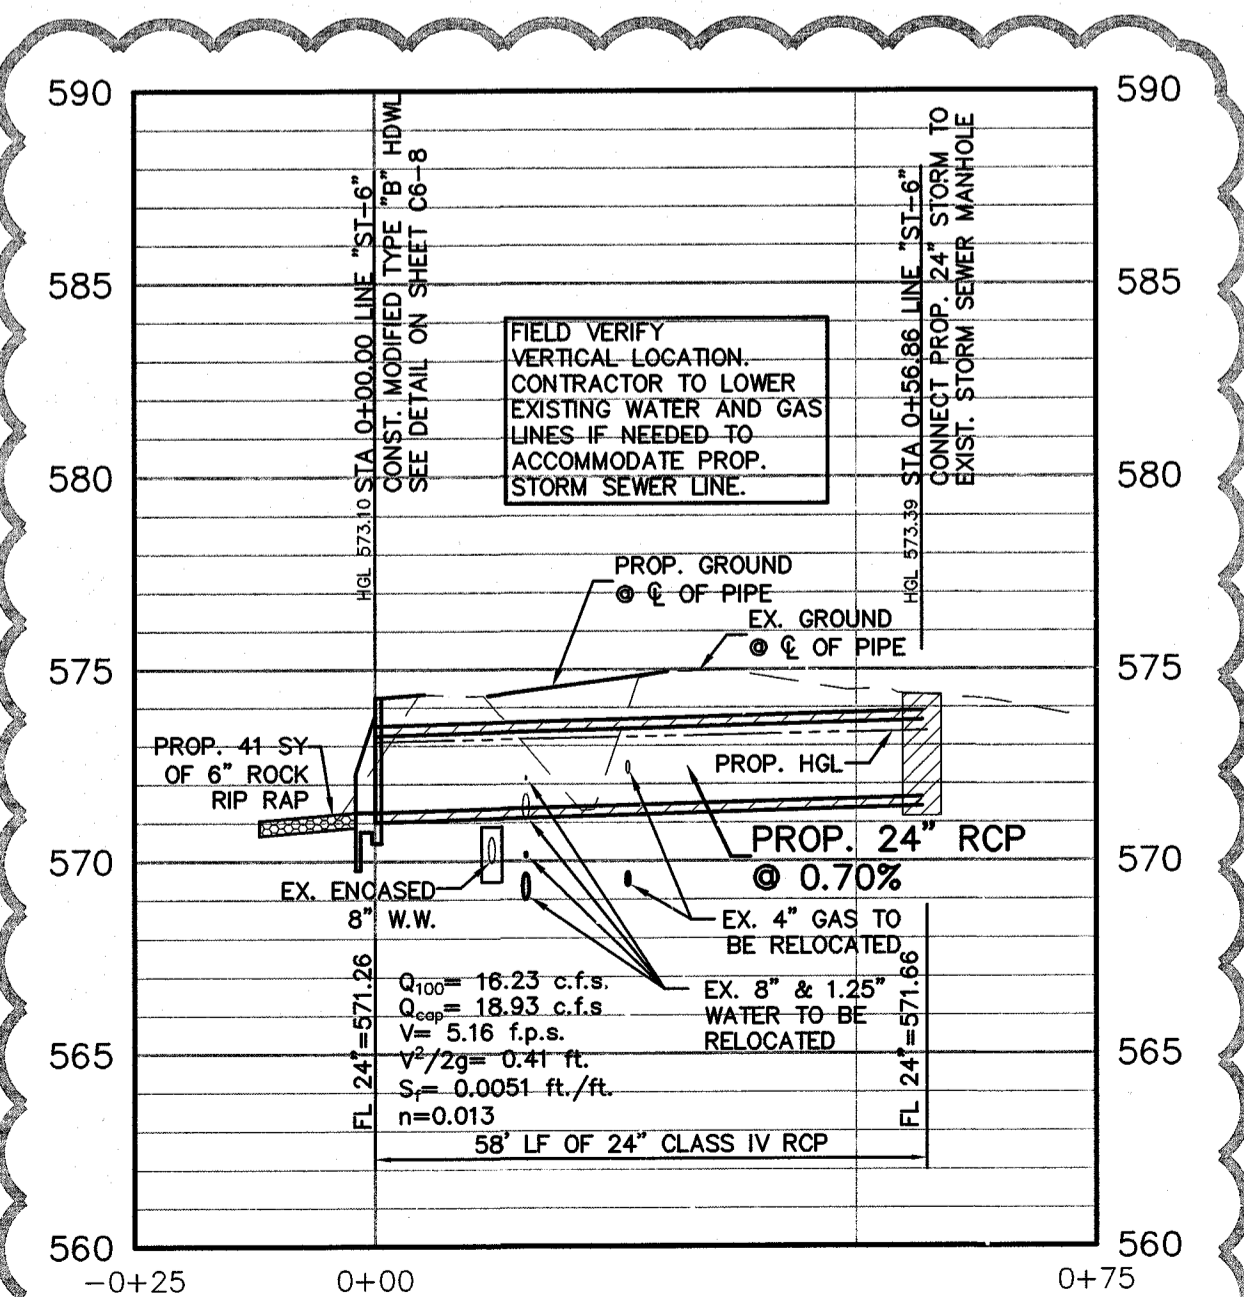 590
590
585
585
580
580
575
575
570
570
565
565
560
560
-0+25
0+00
0+75
HGL 573.10 STA 0+00.00 LINE "ST-6"
CONST. MODIFIED TYPE "B" HDWL
SEE DETAIL ON SHEET C6-8
HGL 573.39 STA 0+56.86 LINE "ST-6"
CONNECT PROP. 24" STORM TO
EXIST. STORM SEWER MANHOLE
FIELD VERIFY
VERTICAL LOCATION.
CONTRACTOR TO LOWER
EXISTING WATER AND GAS
LINES IF NEEDED TO
ACCOMMODATE PROP.
STORM SEWER LINE.
PROP. GROUND
@ ℄ OF PIPE
EX. GROUND
@ ℄ OF PIPE
PROP. 41 SY
OF 6" ROCK
RIP RAP
PROP. HGL
PROP. 24" RCP
@ 0.70%
EX. ENCASED
8" W.W.
EX. 4" GAS TO
BE RELOCATED
EX. 8" & 1.25"
WATER TO BE
RELOCATED
FL 24"=571.26
FL 24"=571.66
Q100= 16.23 c.f.s.
Qcap= 18.93 c.f.s
V= 5.16 f.p.s.
V²/2g= 0.41 ft.
Sf= 0.0051 ft./ft.
n=0.013
58' LF OF 24" CLASS IV RCP